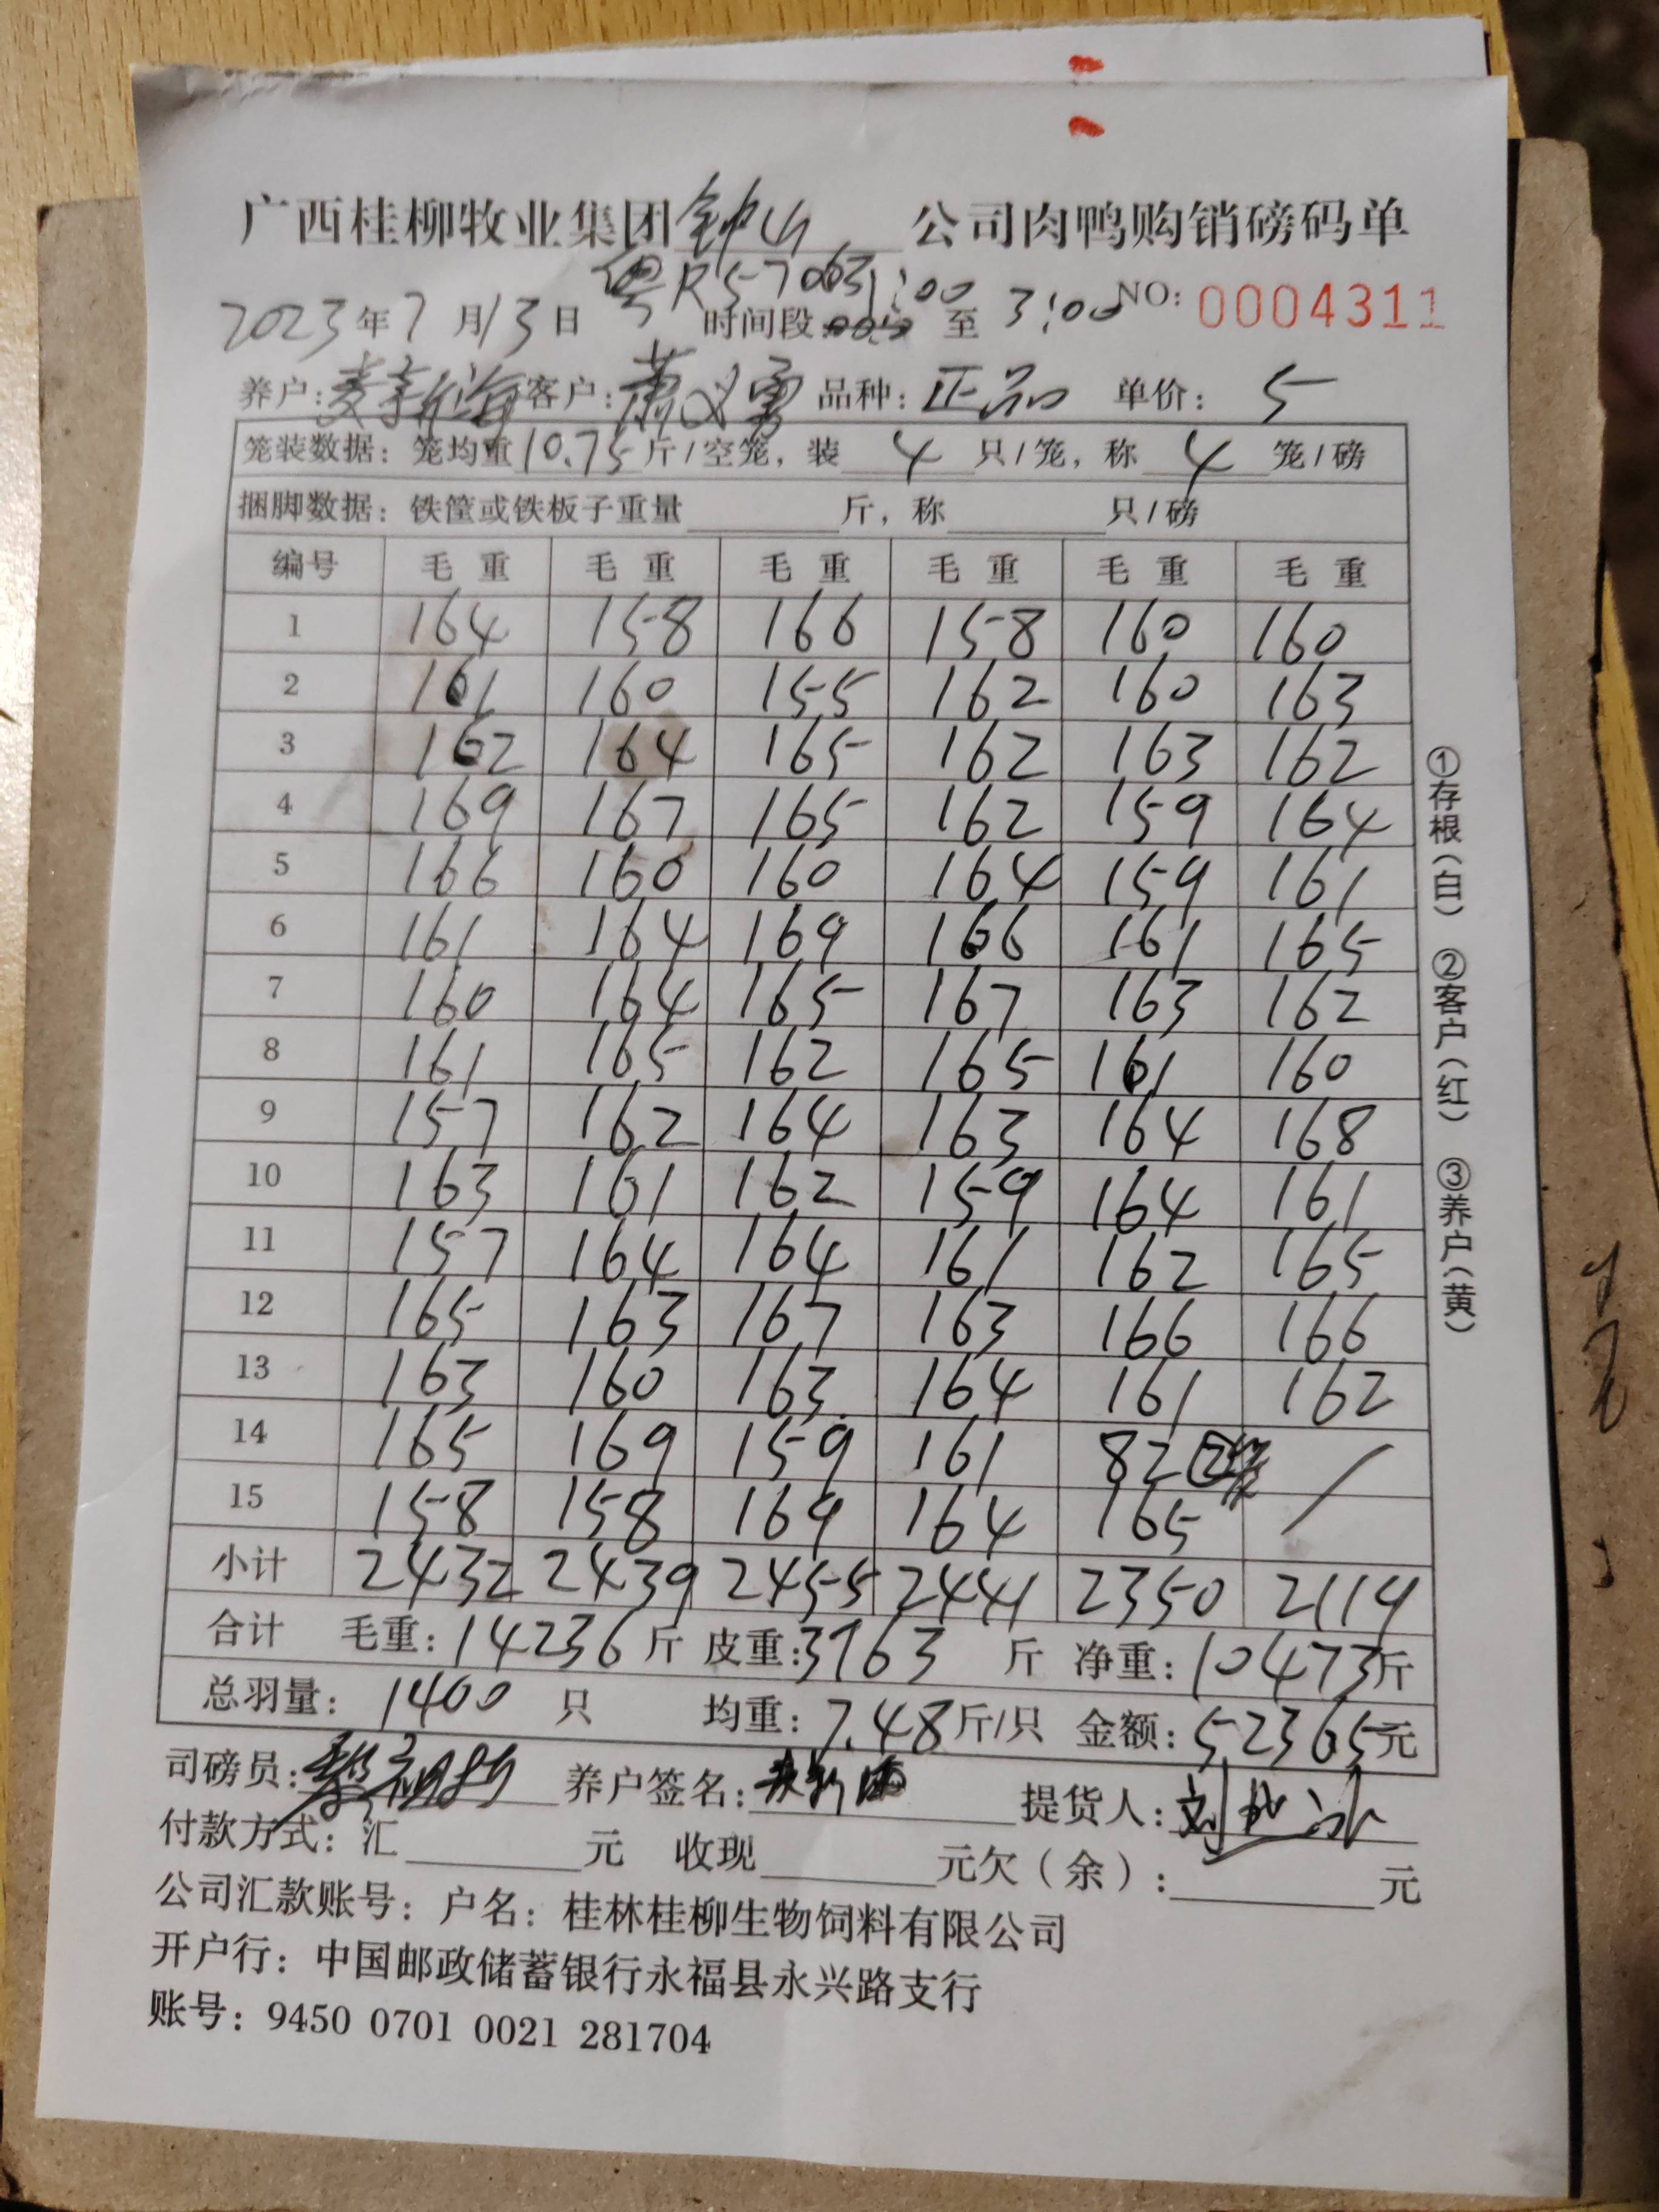 广西桂柳牧业集团钟山公司肉鸭购销磅码单
粤R57063
2023年7月13日 时间段1:00至3:00 NO:0004311
养户: 客户:萧义勇 品种:正品 单价:5
笼装数据:笼均重10.75斤/空笼,装4只/笼,称4笼/磅
捆脚数据:铁筐或铁板子重量 斤,称 只/磅
编号 毛重 毛重 毛重 毛重 毛重 毛重
1 164 158 166 158 160 160
2 161 160 155 162 160 163
3 162 164 165 162 163 162
4 169 167 165 162 159 164
5 166 160 160 164 159 161
6 161 164 169 166 161 165
7 160 164 165 167 163 162
8 161 165 162 165 161 160
9 157 162 164 163 164 168
10 163 161 162 159 164 161
11 157 164 164 161 162 165
12 165 163 167 163 166 166
13 163 160 163 164 161 162
14 165 169 159 161 82 /
15 158 158 169 164 165
小计 2432 2439 2455 2441 2350 2119
合计 毛重:14236斤 皮重:3763斤 净重:10473斤
总羽量:1400只 均重:7.48斤/只 金额:52365元
司磅员: 养户签名: 提货人:
付款方式:汇 元 收现 元欠(余): 元
公司汇款账号:户名:桂林桂柳生物饲料有限公司
开户行:中国邮政储蓄银行永福县永兴路支行
账号:9450 0701 0021 281704
①存根(白) ②客户(红) ③养户(黄)